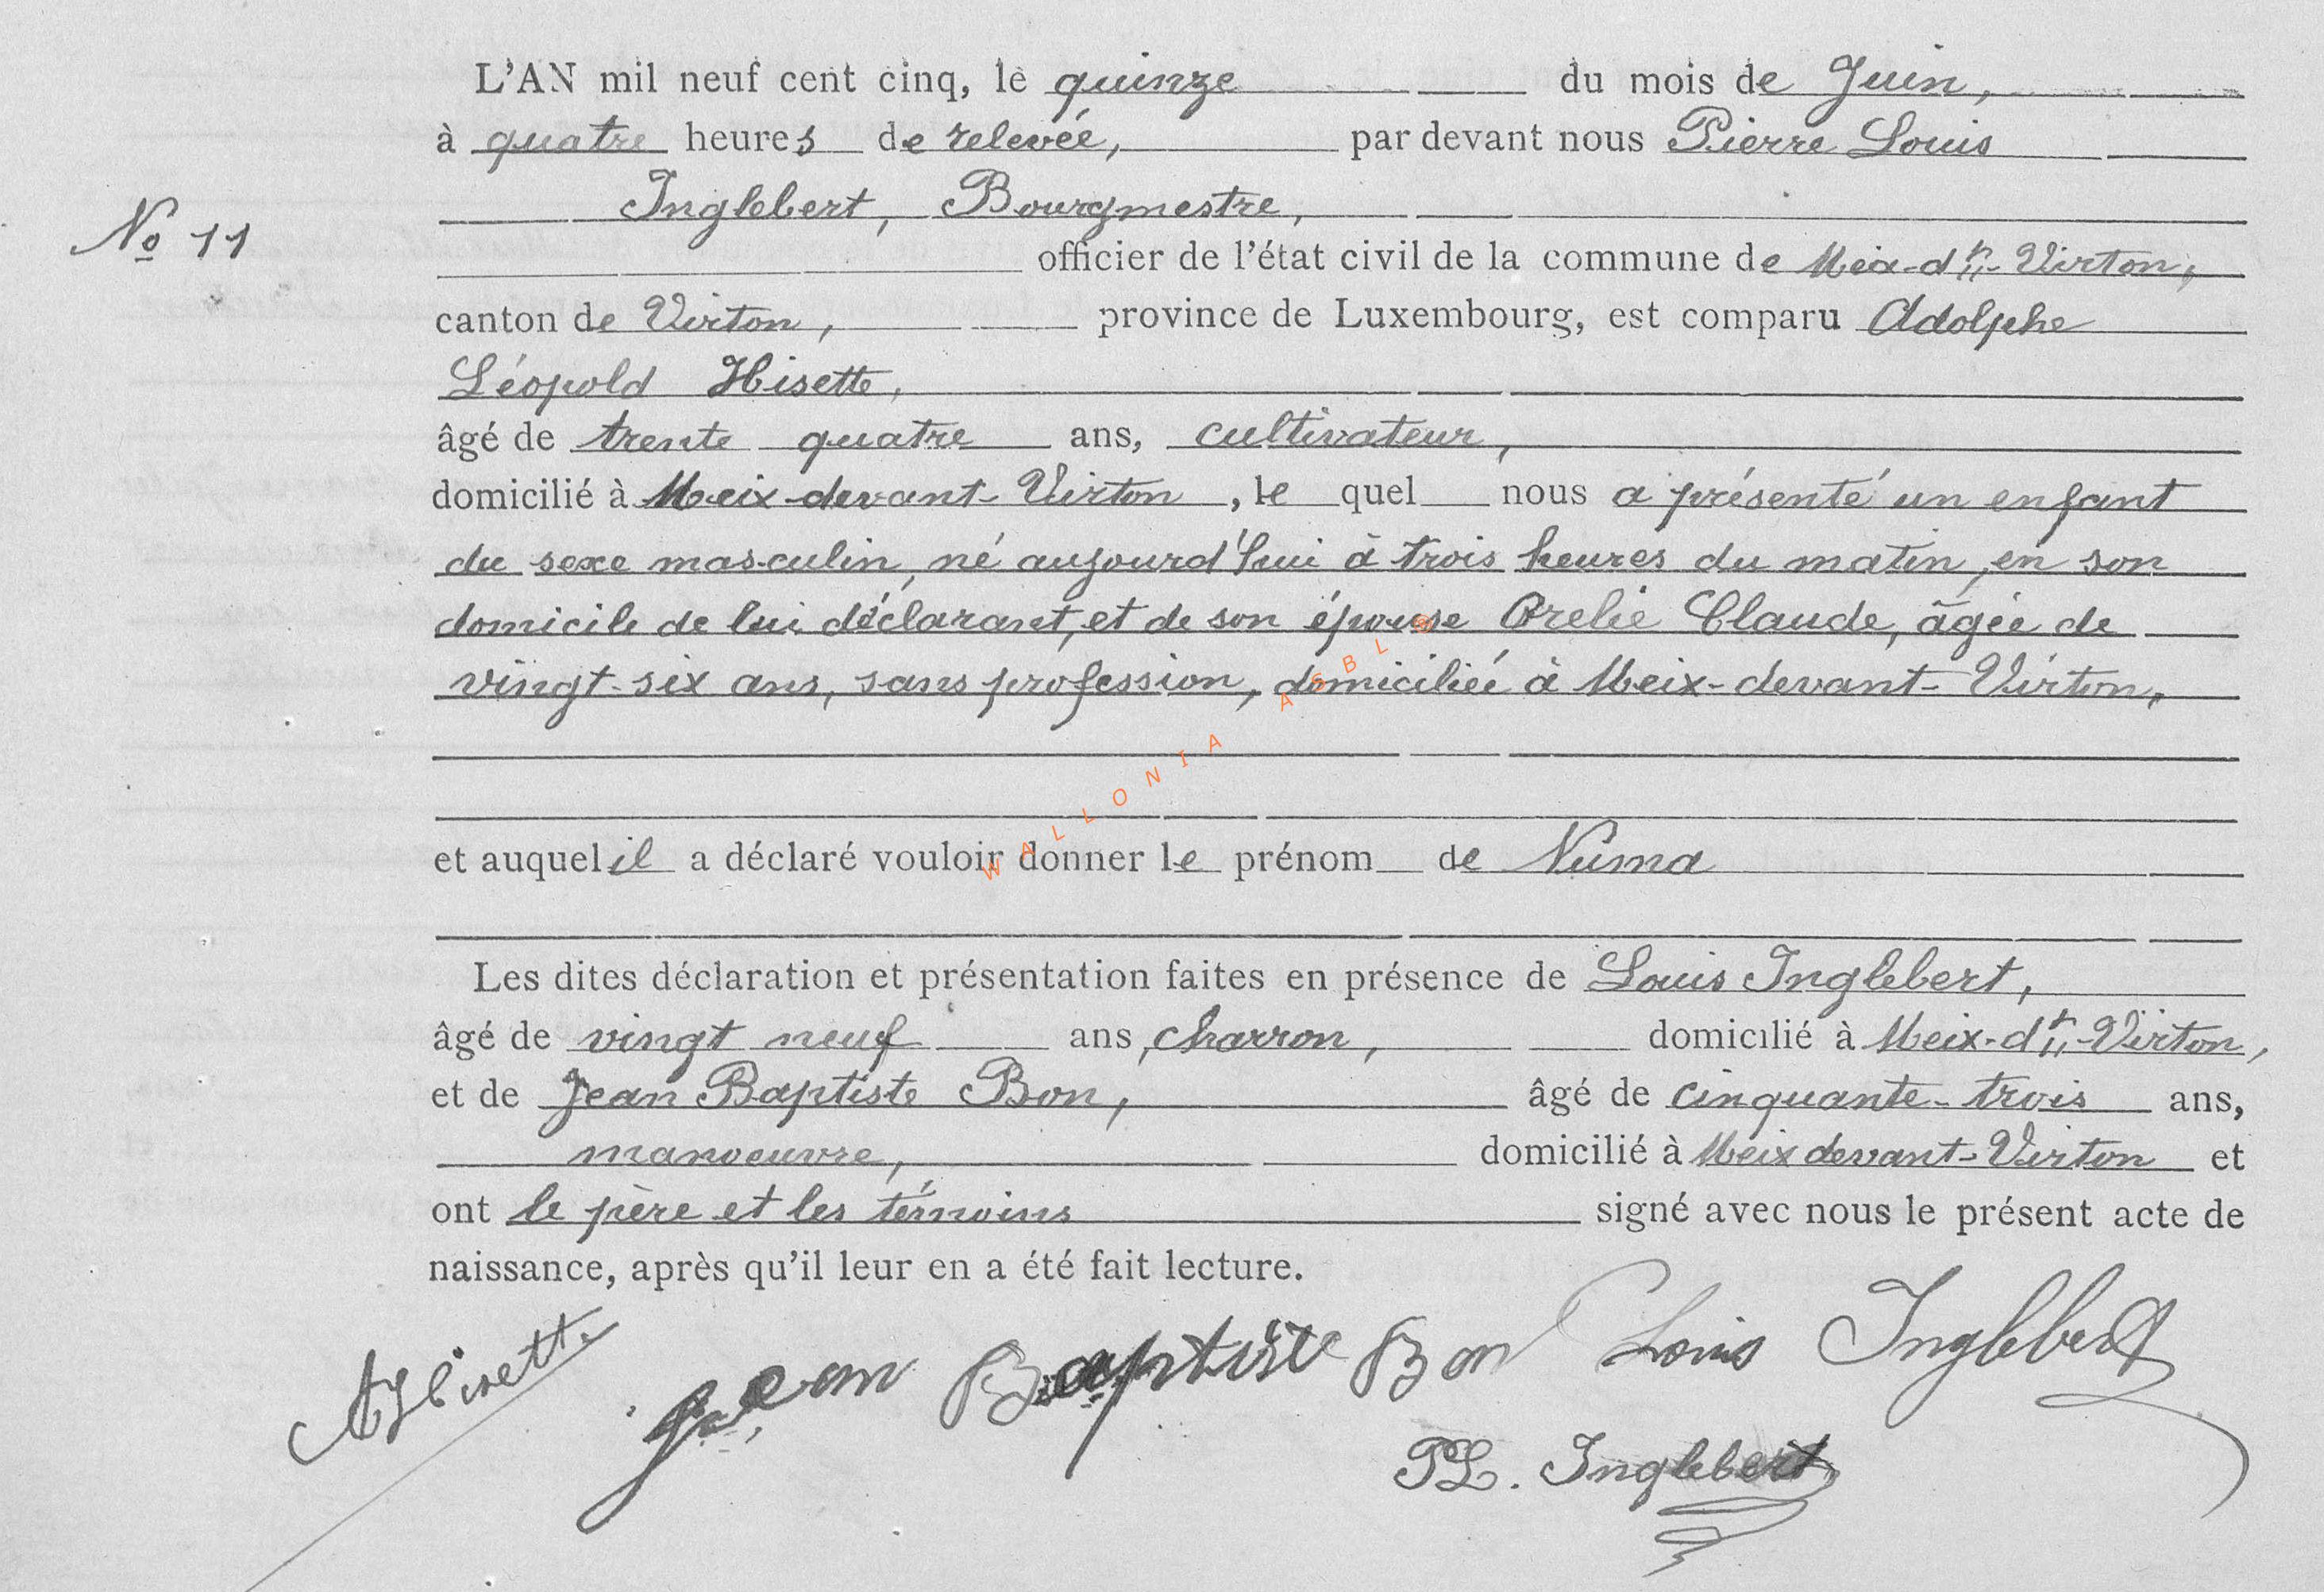 L'AN mil neuf cent cinq, le quinze du mois de Juin,
à quatre heures de relevée, par devant nous Pierre Louis
Inglebert, Bourgmestre,
No 11
officier de l'état civil de la commune de Meix-dt-Virton,
canton de Virton, province de Luxembourg, est comparu Adolphe
Léopold Hisette,
âgé de trente quatre ans, cultivateur,
domicilié à Meix-devant-Virton, le quel nous a présenté un enfant
du sexe masculin, né aujourd'hui à trois heures du matin, en son
domicile de lui déclarant, et de son épouse Orelie Claude, âgée de
vingt-six ans, sans profession, domiciliée à Meix-devant-Virton,
WALLONIA ASBL
et auquel il a déclaré vouloir donner le prénom de Numa
Les dites déclaration et présentation faites en présence de Louis Inglebert,
âgé de vingt neuf ans, charron, domicilié à Meix-dt-Virton,
et de Jean Baptiste Bon, âgé de cinquante-trois ans,
manoeuvre, domicilié à Meix devant-Virton et
ont le père et les témoins signé avec nous le présent acte de
naissance, après qu'il leur en a été fait lecture.
AHisette Jean Baptiste Bon Louis Inglebert
PL. Inglebert